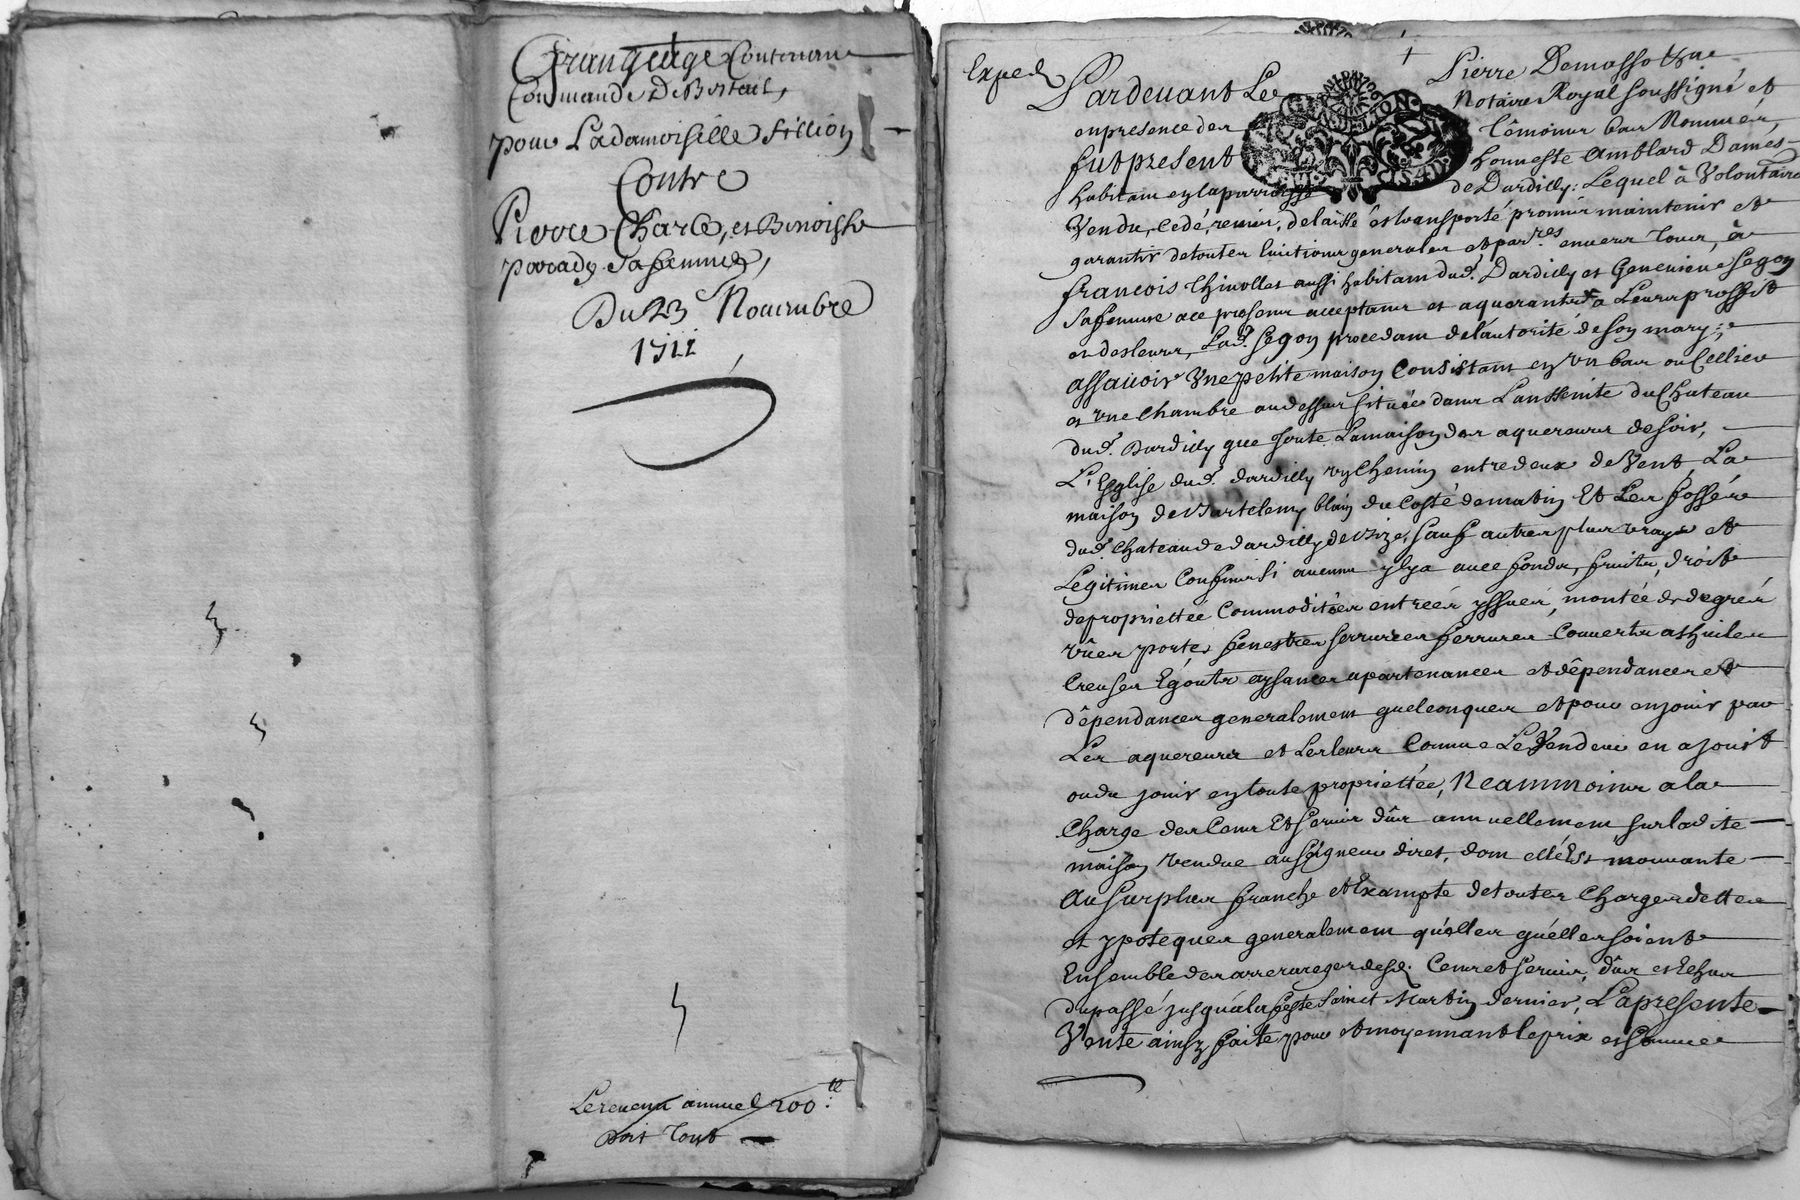 Grangeage Contenant
Commande De Bestail,
pour Ladamoiselle fillion
Contre
Pierre Charle, et Benoiste
sa femme,
Du 23 Novembre
1722
Le revenu annuel 200 :tt
Doit Tout
Exped
Pardevant Le Pierre Demasso
Notaire Royal soussigné et
en presence des têmoins bas Nommés,
fut present honneste Amblard Dames
habitant en la parroisse de Dardilly: Lequel à Volontaire
Vendu, cedé, remis, delaissé et transporté promis maintenir et
garantir de toutes evictions generales et par.res envers tous, à
francois Chivollet aussi habitant dud. Dardilly et Genevieve Segon
sa femme ace presens acceptans et aquerants a Leurs proffit
et des leurs, Lad. Segon procedant de l'autorité de son mary;
assavoir Une petite maison Consistant en Un bas ou Cellier
et une Chambre au dessus située dans L'ansseinte du Chateau
dud. Dardilly que Joute La maison des aquereurs de soir,
L'Esglise dud. dardilly un Chemin entredeux de Vent, La
maison de Bartelemy blain du Costé de matin Et Les fossés
dud. Chateau de dardilly de Bize, sauf autres plus vrays et
Legitimes Confins si aucuns y'lya avec fonds, fruits, droits
de proprietteé Commoditées entreés yssues, montée de degrés
vûes portes fenestres serrures ferrures Couverts a thuiles
Creuses Egouts aysances apartenances et dêpendances et
dêpendances generalement quelconques et pour en jouir par
Les aquereurs et Les leurs Comme Le Vendeur en a jouist
ou du jouir en toute proprietteé, Neammoins a la
Charge des Cens Et servis dûs annuellement sur ladite
maison vendue au seigneur diret, dont elle Est mouvante
Au surplus franche et Exampte de toutes Charges dettes
et ypoteques generalement qu'elles qu'elles soient
Ensemble des arrerages desd. Cens et servis, dûs et Echus
du passé jusqu'a la feste Sainct Martin dernier, La presente
Vente ainsy faite pour et moyennant le prix et somme